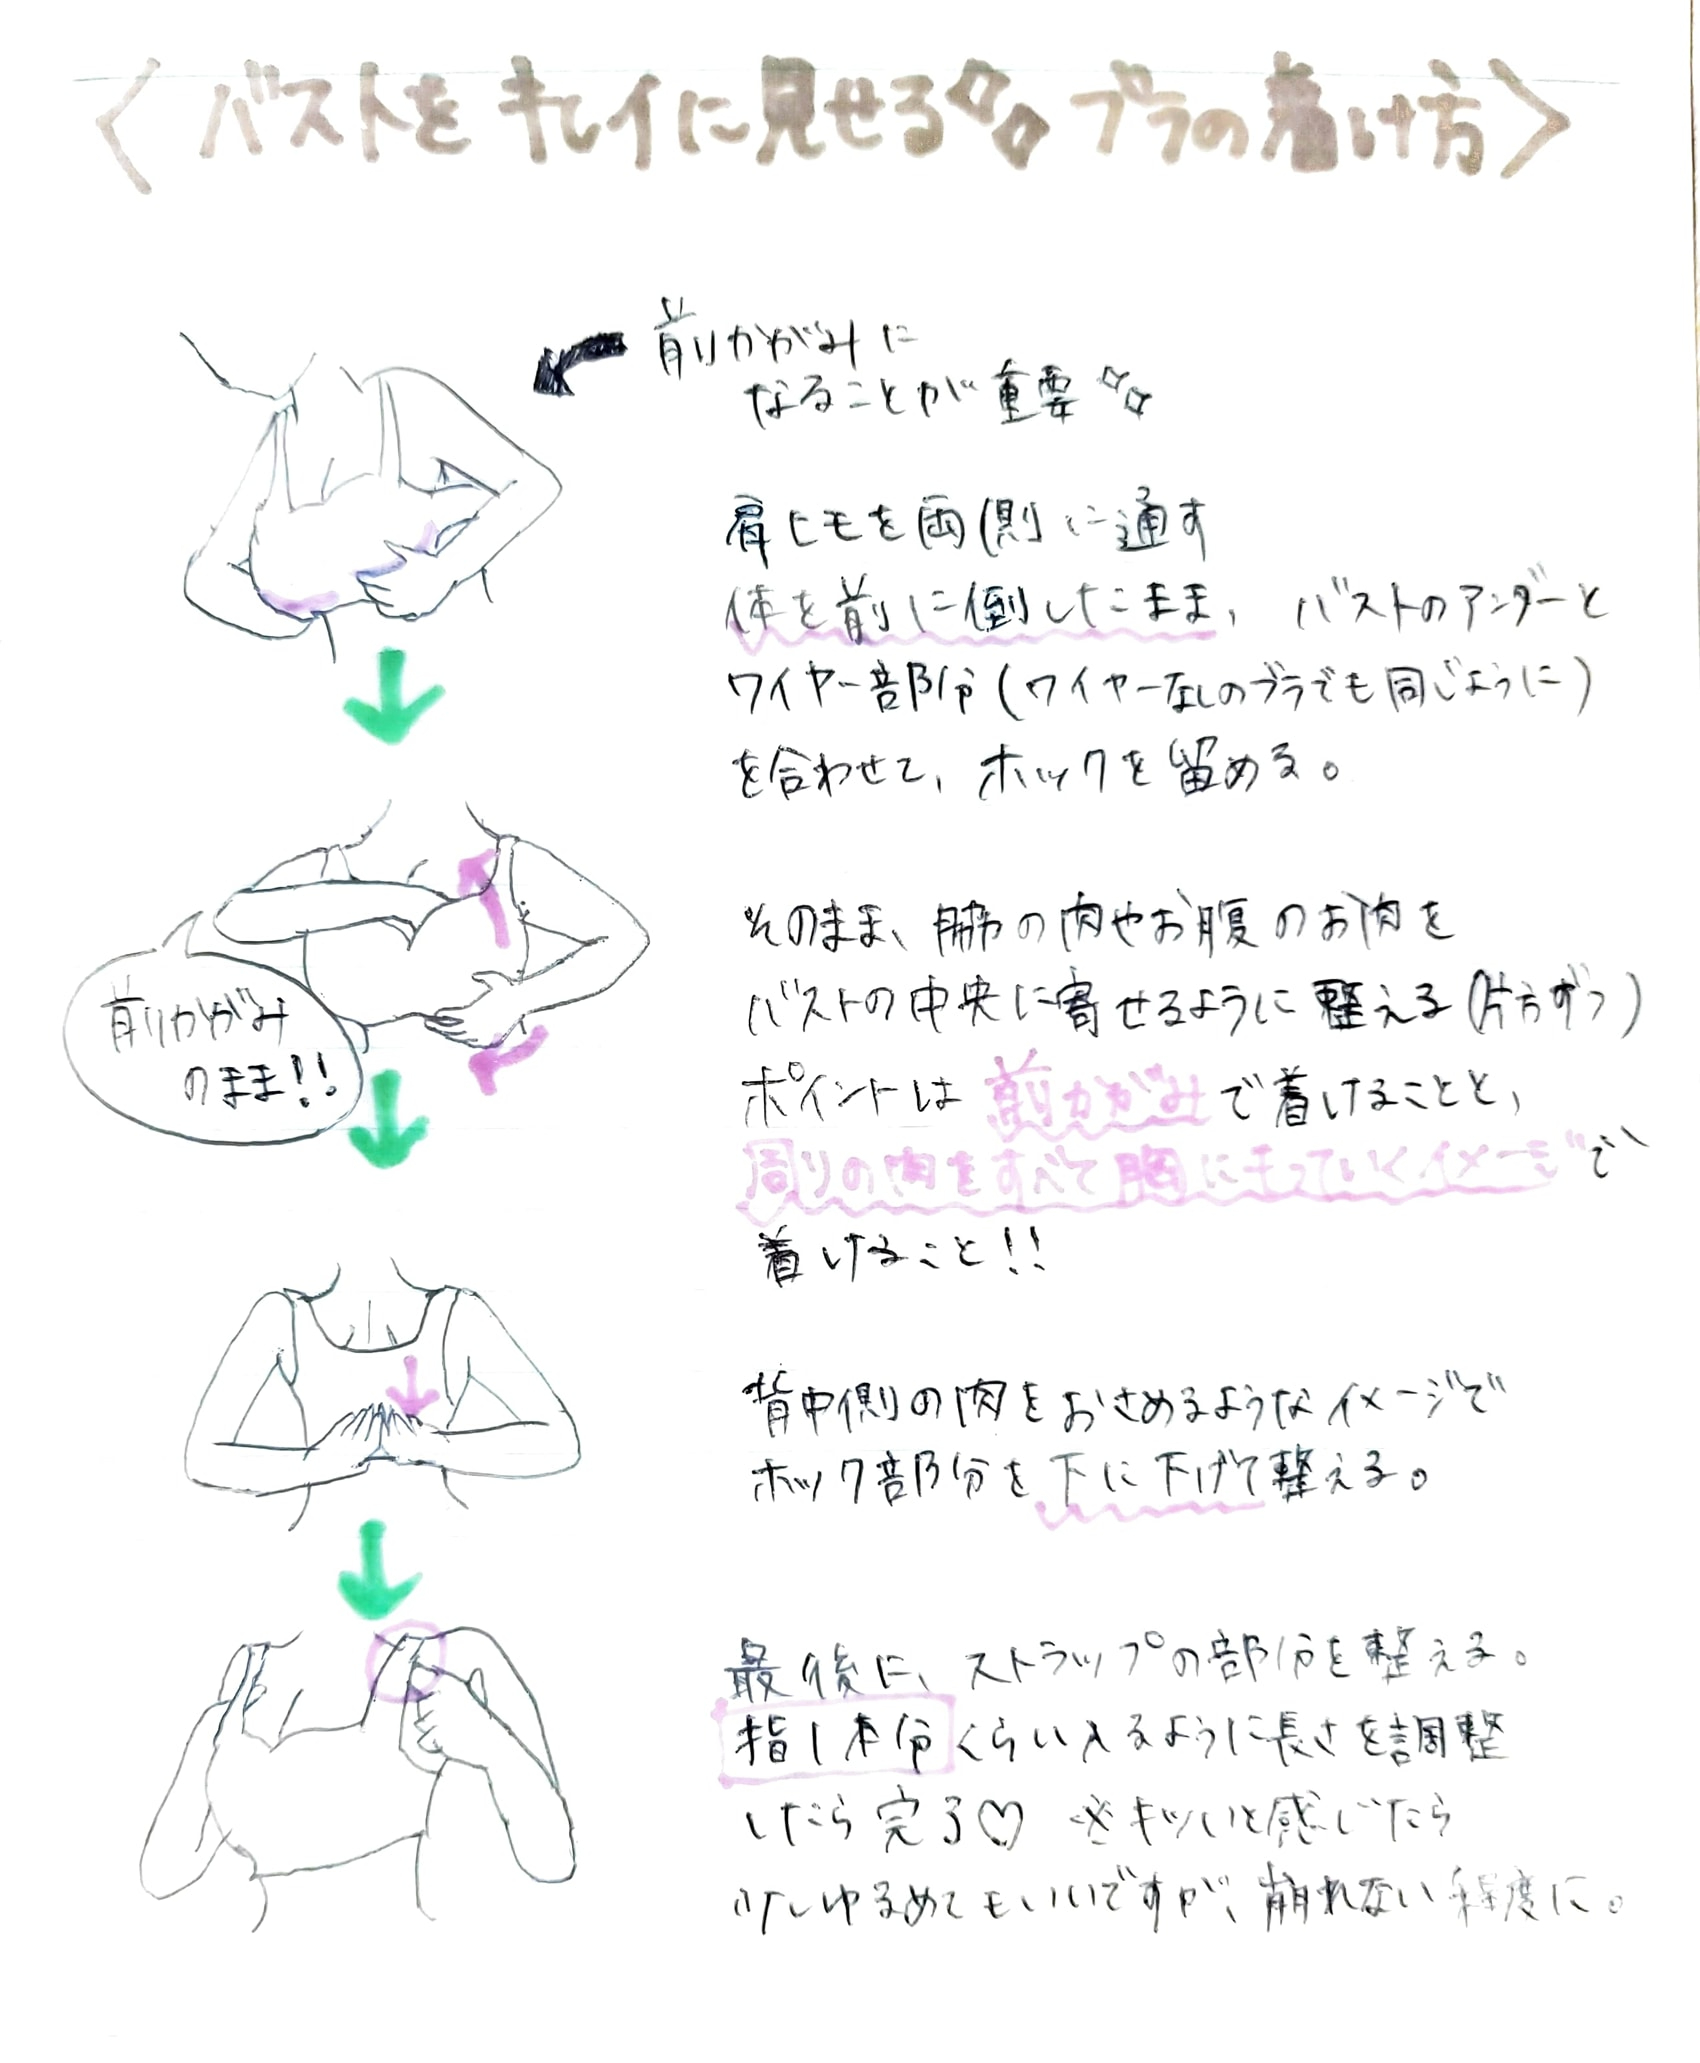 〈バストをキレイに見せる ブラの着け方〉
前かがみに
なることが重要
肩ヒモを両側に通す
体を前に倒したまま、バストのアンダーと
ワイヤー部分(ワイヤーなしのブラでも同じように)
を合わせて、ホックを留める。
そのまま、脇の肉やお腹のお肉を
バストの中央に寄せるように整える(片方ずつ)
前かがみ
のまま!!
ポイントは前かがみで着けることと、
周りの肉をすべて胸にもっていくイメージで
着けること!!
背中側の肉をおさめるようなイメージで
ホック部分を下に下げて整える。
最後に、ストラップの部分を整える。
指1本分くらい入るように長さを調整
したら完了♡ ※キツいと感じたら
少しゆるめてもいいですが、崩れない程度に。